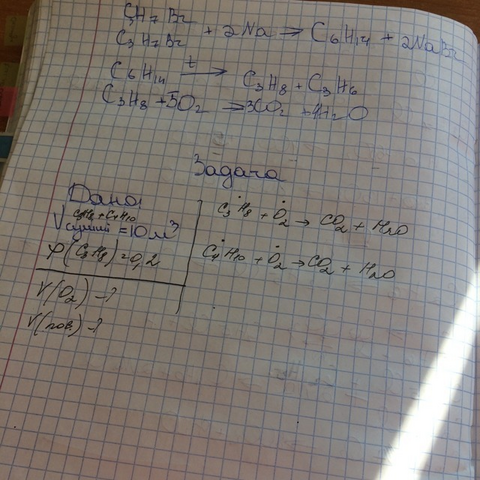 C3H7Br
C3H7Br + 2Na → C6H14 + 2NaBr
C6H14 t→ C3H8 + C3H6
C3H8 + 5O2 → 3CO2 + 4H2O
Задача
Дано:
V C3H8 + C4H10
смеси = 10 м³
φ(C3H8) = 0,2
V(O2) - ?
V(пов) - ?
C3H8 + O2 → CO2 + H2O
C4H10 + O2 → CO2 + H2O